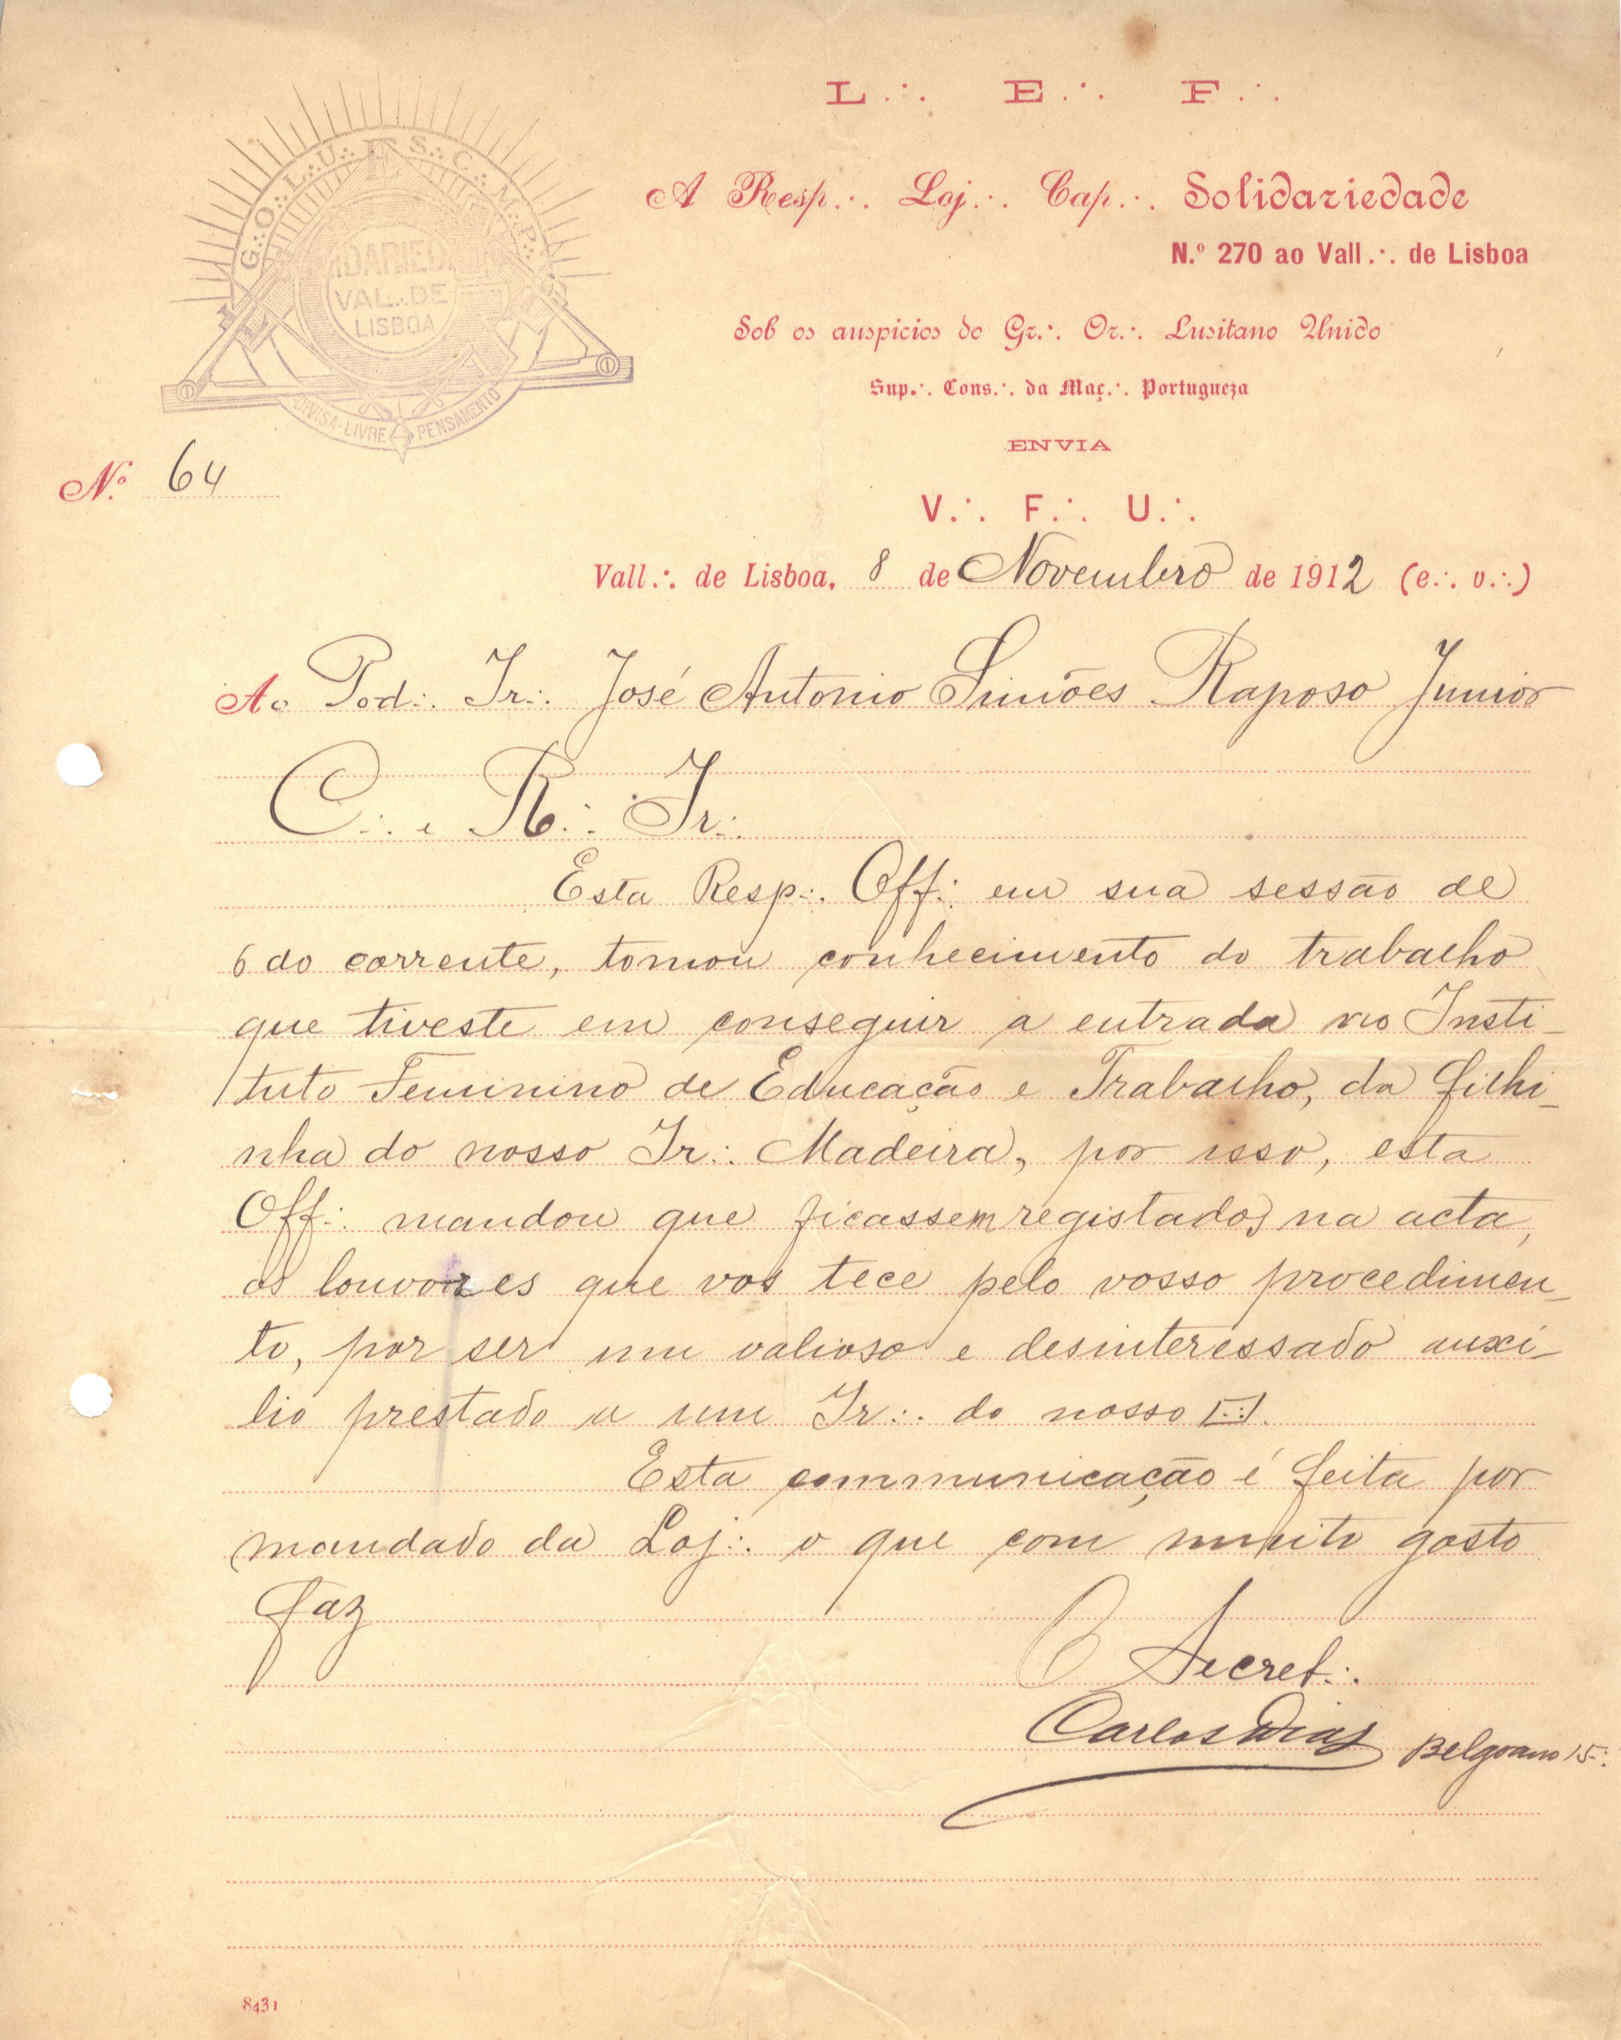 L∴ E∴ F∴
A Resp∴ Loj∴ Cap∴ Solidariedade
N.º 270 ao Vall∴ de Lisboa
Sob os auspicios do Gr∴ Or∴ Lusitano Unido
Sup∴ Cons∴ da Maç∴ Portugueza
ENVIA
V∴ F∴ U∴
G∴O∴L∴U∴ E S∴C∴M∴P∴
VAL∴DE
LISBOA
DIVISA-LIVRE PENSAMENTO
N.º 64
Vall∴ de Lisboa, 8 de Novembro de 1912 (e∴ v∴)
Ao Pod∴ Ir∴ José Antonio Simões Raposo Junior
C∴ e R∴ Ir∴
Esta Resp∴ Off∴ em sua sessão de
6 do corrente, tomou conhecimento do trabalho
que tiveste em conseguir a entrada no Insti-
tuto Feminino de Educação e Trabalho, da filhi-
nha do nosso Ir∴ Madeira, por isso, esta
Off∴ mandou que ficassem registados na acta,
os louvores que vos tece pelo vosso procedimen-
to, por ser um valioso e desinteressado auxi-
lio prestado a um Ir∴ do nosso [∴].
Esta communicação é feita por
mandado da Loj∴ o que com muito gosto
faz
O Secret∴
Carlos Dias Belgrano 15∴
8431